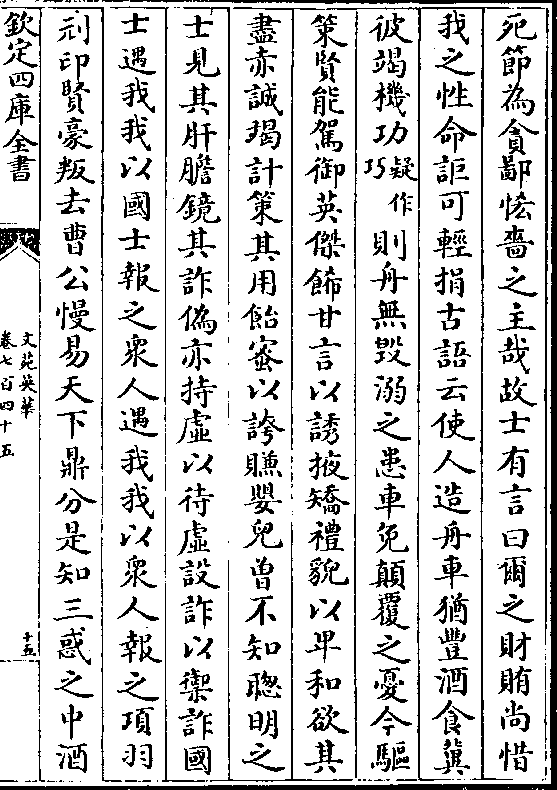 死節為貪鄙恡嗇之主哉故士有言曰爾之財賄尚惜
我之性命詎可輕捐古語云使人造舟車猶豐酒食冀
彼竭機功疑作巧則舟無毀溺之患車免顛覆之憂今驅
策賢能駕御英傑飾甘言以誘掖矯禮貌以卑和欲其
盡赤誠竭計策其用飴蜜以誇賺嬰兒曾不知聰明之
士見其肝膽鏡其詐偽亦持虛以待虛設詐以禦詐國
士遇我我以國士報之衆人遇我我以衆人報之項羽
刓印賢豪叛去曹公慢易天下鼎分是知三惑之中酒
欽定四庫全書
文苑英華
卷七百四十五
十五